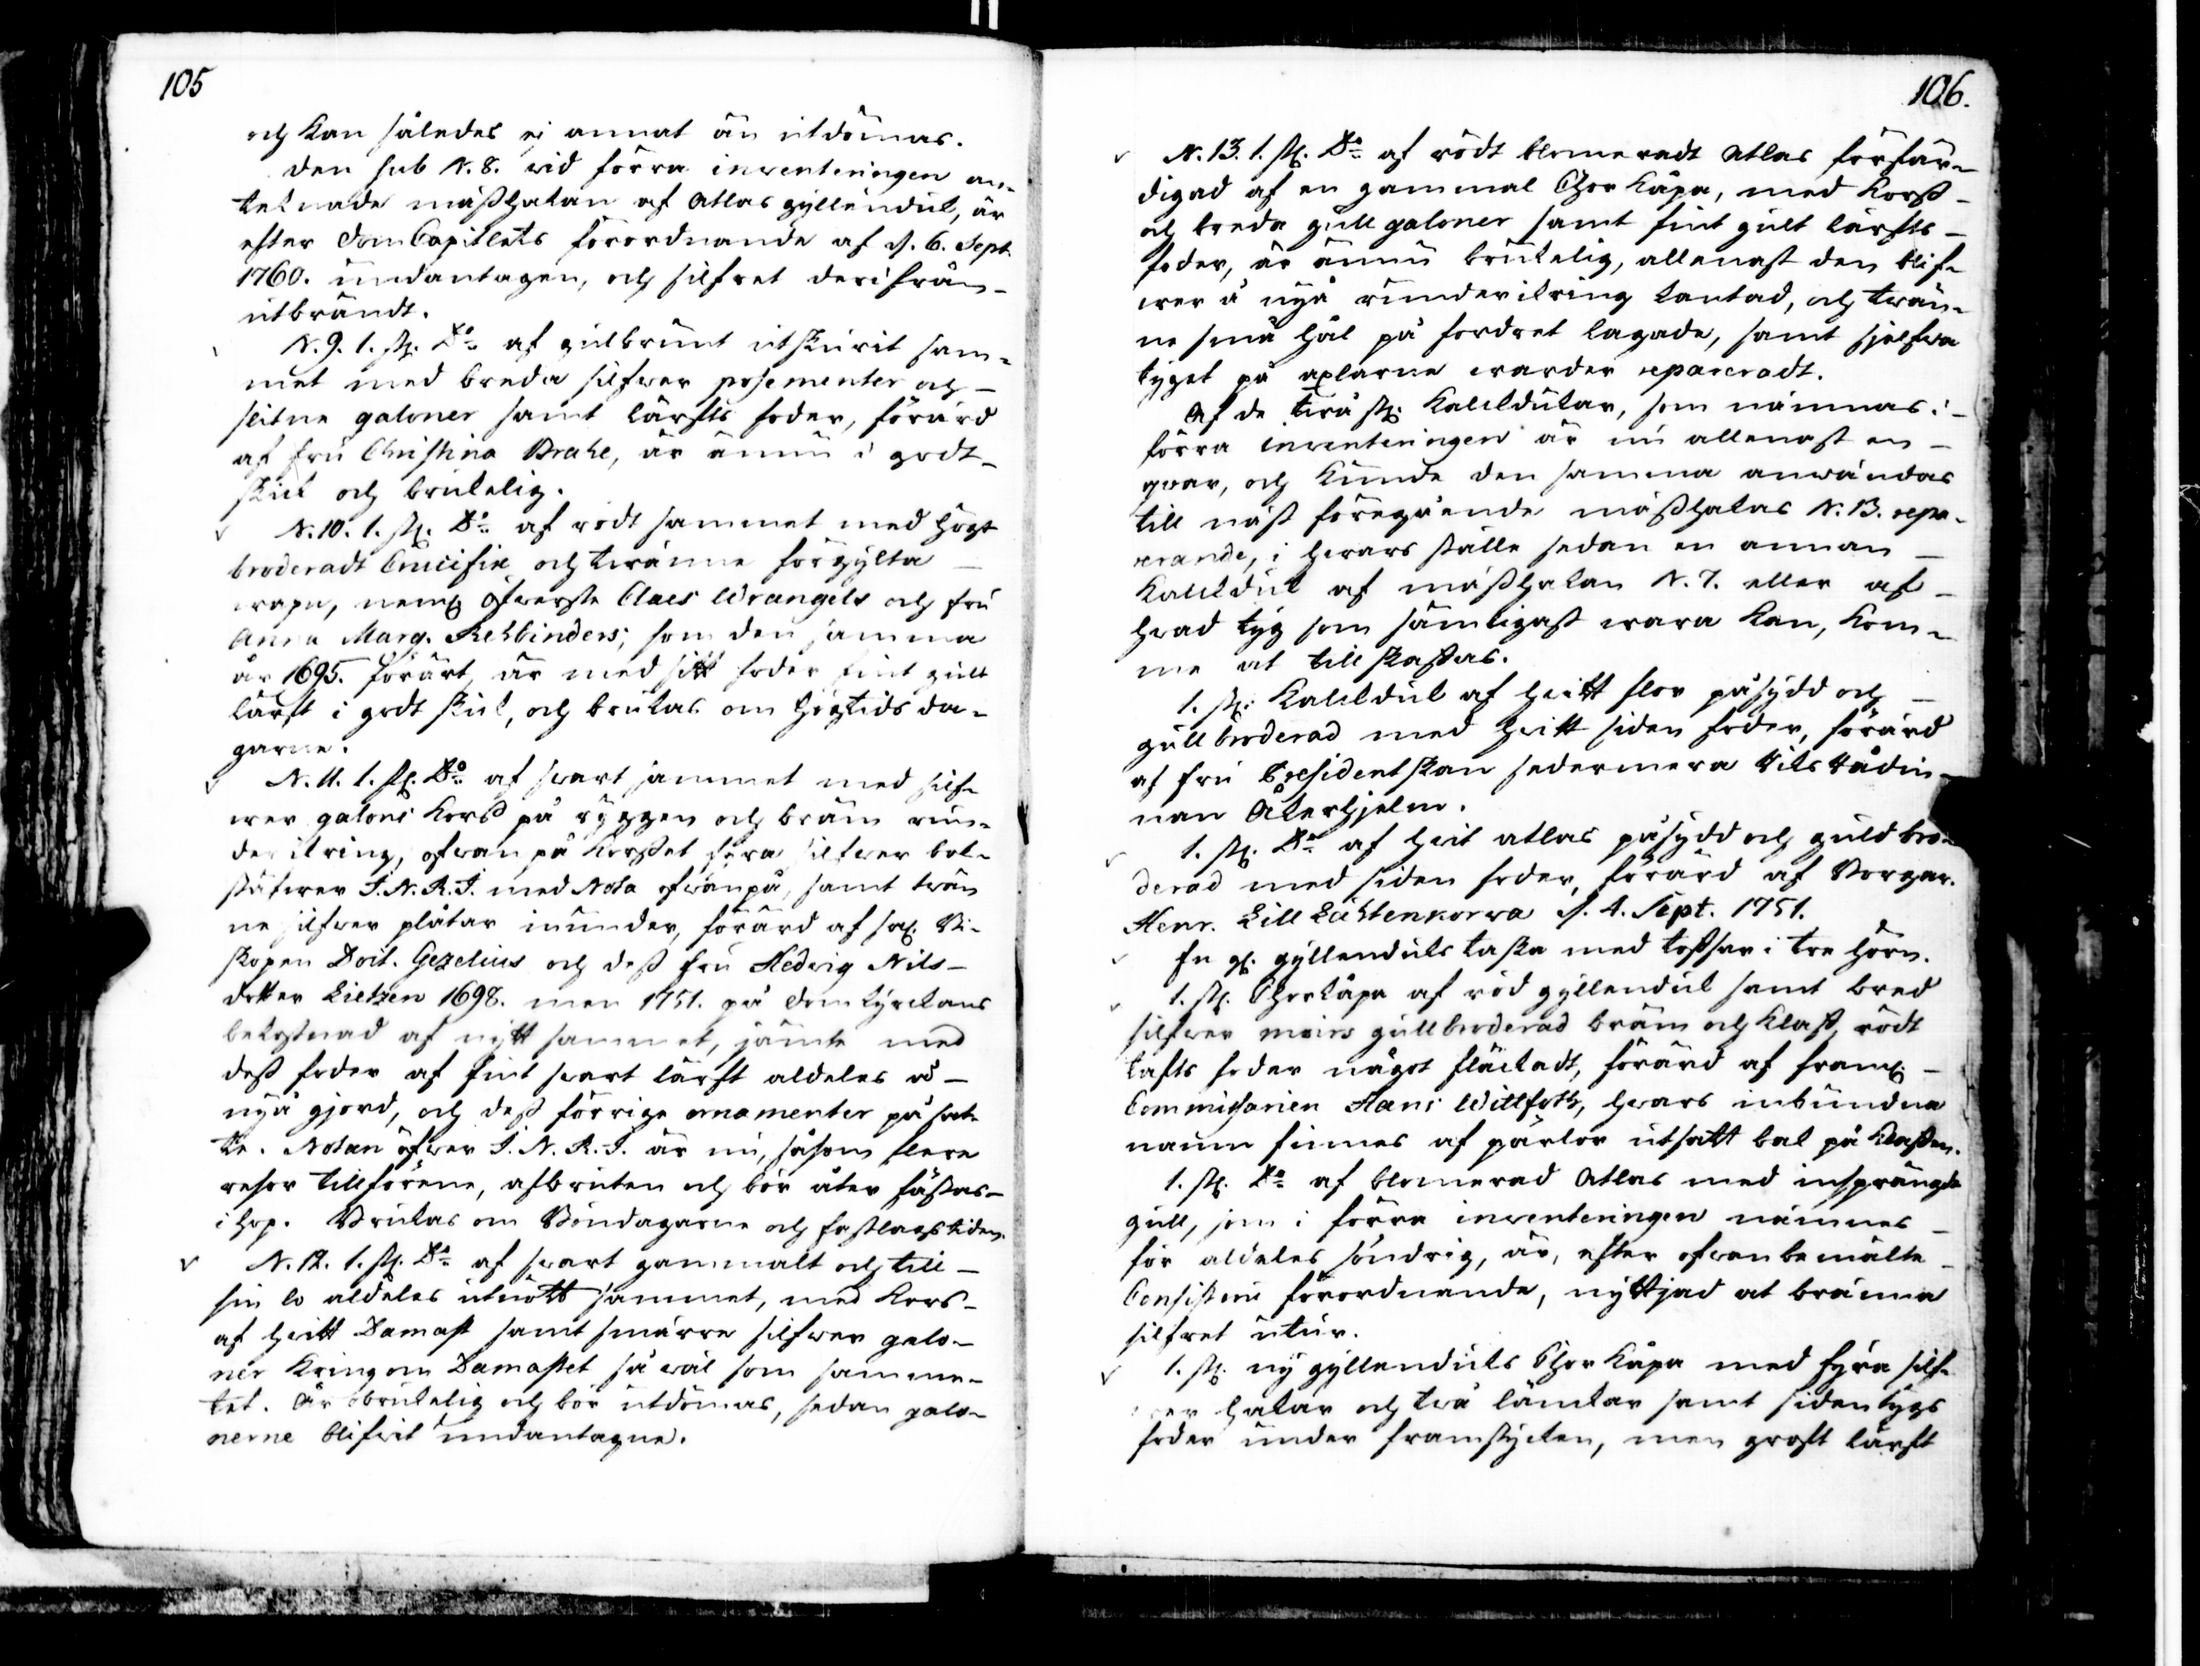 105
och kan således ej annat än utdömas.
Den sub N. 8. wid förra inventeringen an-
teknade mässhakan af Atlas gyllenduk, är
efter DomCapitlets förordnande af d. 6. Sept.
1760. undantagen, och silfret derifrån
utbrändt.
N. 9. 1. st. Do af gulbrunt utskurit sam-
met med breda silfwer posementer och
slitne galoner samt lärfts foder, förärd
af fru Christina Brahe, är ännu i godt
skick och brukelig.
N. 10. 1. st. Do af rödt sammet med högt
broderadt Crucifix och twänne förgylta
wapn, neml. Öfwerste Claes Wrangels och fru
Anna Marg. Rehbinders, som den samma
år 1695. förärt, är med sitt foder fint gult
lärft i godt skick, och brukas om högtids da-
garne.
N. 11. 1. st. Do af swart sammet med silf-
wer galons Kors på ryggen och bräm run-
der ikring, ofwan på Korsset stora silfwer bok-
stäfwer I. N. R. I. med Nota ofwanpå, samt twän
ne silfwer plåtar inunder, förärd af sal. Bi-
skopen Doct. Gezelius och dess fru Hedwig Nils-
dotter Lietzen 1698. men 1751. på Domkyrckans
bekostnad af nytt sammet, jämte med
dess foder af fint swart lärft aldeles å
nyå gjord, och dess förrige ornamenter påsat-
te. Notan öfwer I. N. R. I. är nu, såsom flere
resor tillförene, afbruten och bör åter fästas
i hop. Brukas om Böndagarne och fastlagstiden.
N. 12. 1. st. Do af swart gammalt och till
sin lo aldeles utnött sammet, med Kors
af hwitt Damast samt smärre silfwer galo-
ner kringom Damastet så wäl som samme-
tet. Är obrukelig och bör utdömas, sedan galo-
nerne blifwit undantagne.
106.
N. 13. 1. st. Do af rödt blomeradt Atlas förfär-
digad af en gammal Chor Kåpa, med Korss
och breda gull galoner samt fint gult lärfts
foder, är ännu brukelig, allenast den blif-
wer å nyå runderikring kantad, och twän-
ne små hål på fordret lagade, samt sjelfwa
tyget på axlarne warder repareradt.
Af de twå st. Kalckdukar, som nämnas i
förra inventeringen är nu allenast en
qwar, och kunde den samma anwändas
till näst föregående mässhakas N. 13. repa-
rerande, i hwars ställe sedan en annan
Kalckduk af mässhakan N. 7. eller af
hwad tyg som sämligast wara kan, kom-
me at tillskaffas.
1. st. Kalckduk af hwitt flor påsydd och
gull broderad med hwitt siden foder, förärd
af fru Presidentskan sedermera RiksRådin-
nan Åkerhjelm.
1. st. Do af hwit atlas påsydd och guld bro-
derad med siden foder, förärd af Borgar.
Henr. Lill Lichtenkorwa d. 4. Sept. 1751.
En gl. gyllenduks taska med tofsar i tre hörn.
1. st. Chorkåpa af röd gyllenduk samt bred
silfwer moirs gullbroderad bräm och Klaff, rödt
tafts foder något fläckadt, förärd af framl.
Commissarien Hans Wittfoth, hwars inbundna
namn finnes af pärlor utsatt bak på Klaffen.
1. st. Do af blomerad Atlas med insprängde
gull, som i förra inventeringen nämnes
för aldeles söndrig, är, efter ofwanbemälte
Consistorii förordnande, nyttjad at bränna
silfret utur.
1. st. ny gyllenduks Chor Kåpa med fyra silf-
wer hakar och twå länckar samt sidentygs
foder under framstycken, men groft lärft